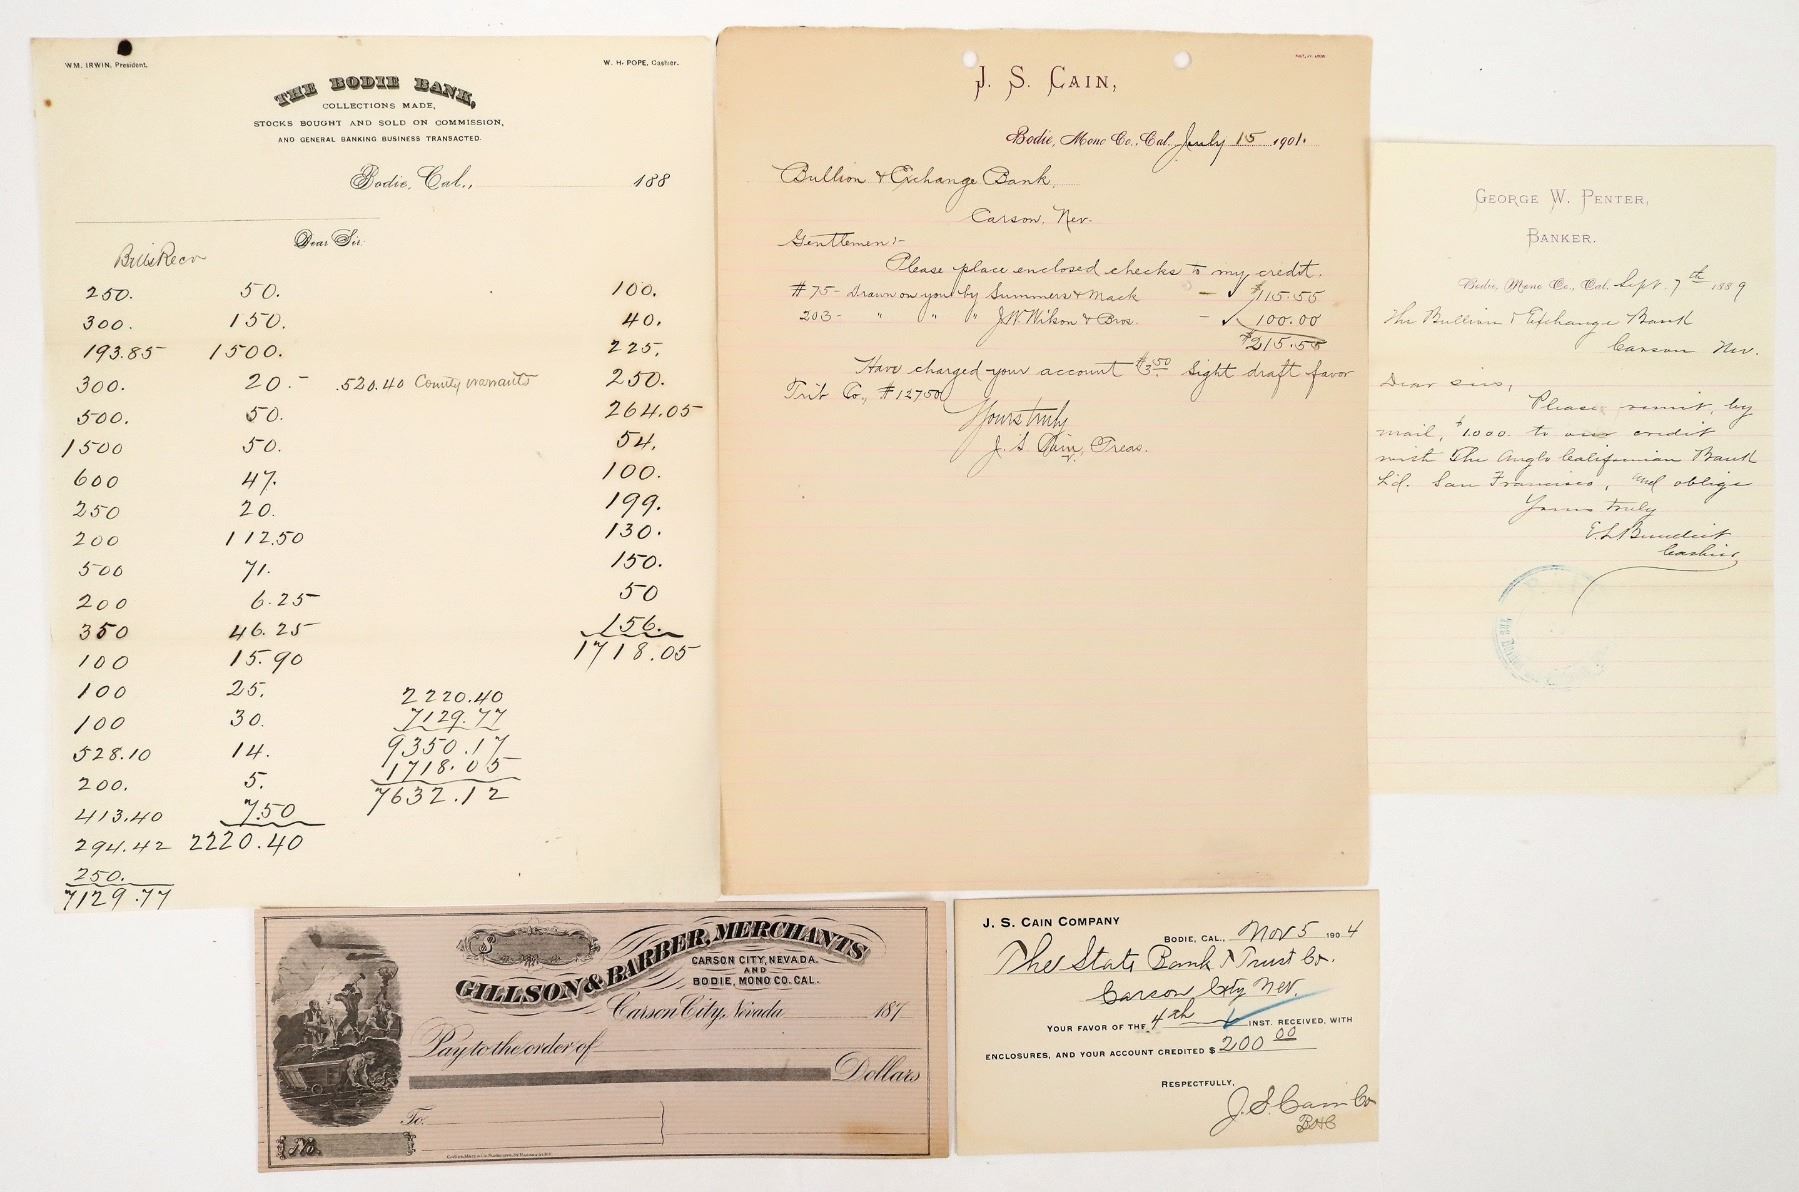 WM. IRWIN, President.
W. H. POPE, Cashier.
THE BODIE BANK,
COLLECTIONS MADE,
STOCKS BOUGHT AND SOLD ON COMMISSION,
AND GENERAL BANKING BUSINESS TRANSACTED.
Bodie, Cal., 188
Dear Sir:
Bills Recv
250. 50. 100.
300. 150. 40.
193.85 1500. 225.
300. 20.- 520.40 County warrants 250.
500. 50. 264.05
1500 50. 54.
600 47. 100.
250 20. 199.
200 112.50 130.
500 71. 150.
200 6.25 50
350 46.25 156.
100 15.90 1718.05
100 25. 2220.40
100 30. 7129.77
528.10 14. 9350.17
200. 5. 1718.05
413.40 7.50 7632.12
294.42 2220.40
250.
7129.77
J. S. CAIN,
Bodie, Mono Co., Cal. July 15 1901.
Bullion & Exchange Bank,
Carson, Nev.
Gentlemen:-
Please place enclosed checks to my credit.
#75- Drawn on you by Summers & Mack - ✓ $115.55
203- " " " J.W. Wilson & Bros. - ✓ 100.00
$215.55
Have charged your account $3.50 Sight draft favor
Trib Co., #12750
Yours truly
J. S. Cain, Treas.
GEORGE W. PENTER,
BANKER.
Bodie, Mono Co., Cal. Sept. 7th 1889
The Bullion & Exchange Bank
Carson Nev.
Dear sirs,
Please remit, by
mail, $1000. to our credit
with The Anglo Californian Bank
Ld. San Francisco, and oblige
Yours truly
E. L. Benedict
Cashier
GILLSON & BARBER, MERCHANTS
CARSON CITY, NEVADA.
AND
BODIE, MONO CO. CAL.
Carson City, Nevada 187
Pay to the order of
Dollars
To
$
No.
J. S. CAIN COMPANY
BODIE, CAL., Nov 5 1904
The State Bank & Trust Co.
Carson City Nev.
YOUR FAVOR OF THE 4th INST. RECEIVED, WITH
ENCLOSURES, AND YOUR ACCOUNT CREDITED $ 200 00
RESPECTFULLY,
J. S. Cain Co
BHC